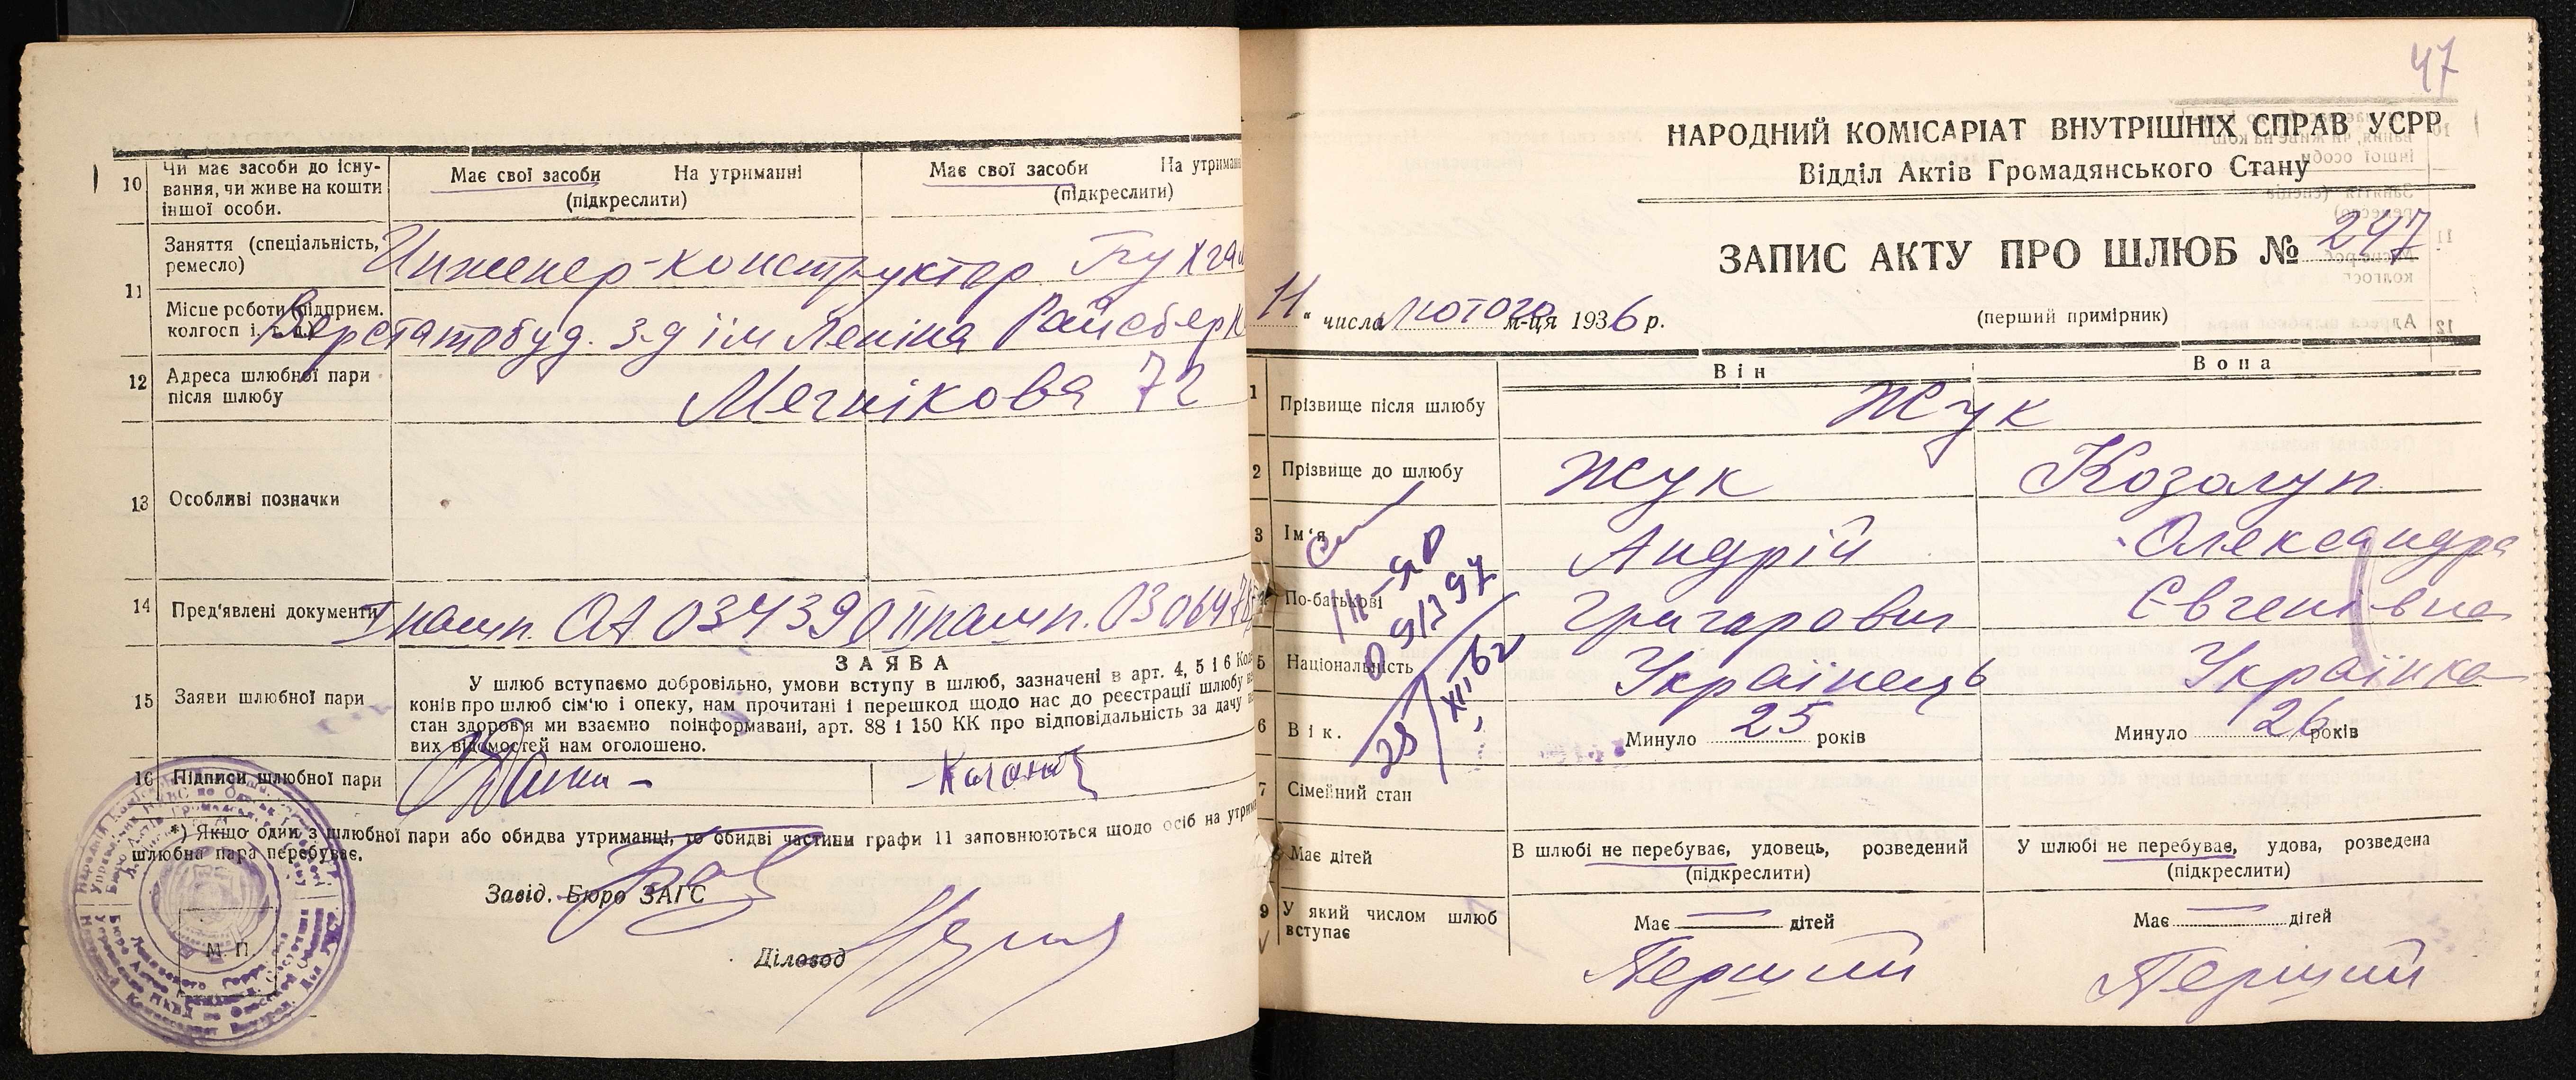 10 Чи має засоби до існу-
вання, чи живе на кошти
іншої особи.
Має свої засоби На утриманні
(підкреслити)
Має свої засоби На утриман
(підкреслити)
11 Заняття (спеціальність,
ремесло)
Инженер-конструктор
Місце роботи (підприєм.
колгосп і. т. д.)
Верстатобуд. з-д ім Леніна Райсберк
12 Адреса шлюбної пари
після шлюбу
Мечнікова 72
13 Особливі позначки
14 Пред'явлені документи
I пашп. ОА 034390 II пашп.
15 Заяви шлюбної пари
ЗАЯВА
У шлюб вступаємо добровільно, умови вступу в шлюб, зазначені в арт. 4, 5 і 6 Код
конів про шлюб сім'ю і опеку, нам прочитані і перешкод щодо нас до реєстрації шлюбу
стан здоров'я ми взаємно поінформавані, арт. 88 і 150 КК про відповідальність за дачу
вих відомостей нам оголошено.
16 Підписи шлюбної пари
*) Якщо один з шлюбної пари або обидва утриманці, то обидві частини графи 11 заповнюються щодо осіб на утрим
шлюбна пара перебуває.
Завід. Бюро ЗАГС
М. П.
Діловод
47
НАРОДНИЙ КОМІСАРІАТ ВНУТРІШНІХ СПРАВ УСРР
Відділ Актів Громадянського Стану
ЗАПИС АКТУ ПРО ШЛЮБ № 247
11 " числа лютого м-ця 1936 р.
(перший примірник)
Він Вона
1 Прізвище після шлюбу Жук
2 Прізвище до шлюбу Жук Козолуп
3 Ім'я Андрій Олександра
По-батькові Григорович Євгенівна
5 Національність Українець Українка
6 Вік. Минуло 25 років Минуло 26 років
7 Сімейний стан
В шлюбі не перебуває, удовець, розведений
(підкреслити)
У шлюбі не перебуває, удова, розведена
(підкреслити)
Має дітей
Має — дітей
Має — дітей
9 У який числом шлюб
вступає
Перший Перший